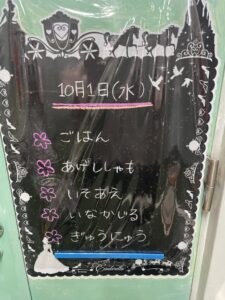 10月1日(水)
ごはん
あげししゃも
いそあえ
いなかじる
ぎゅうにゅう
Cinderella